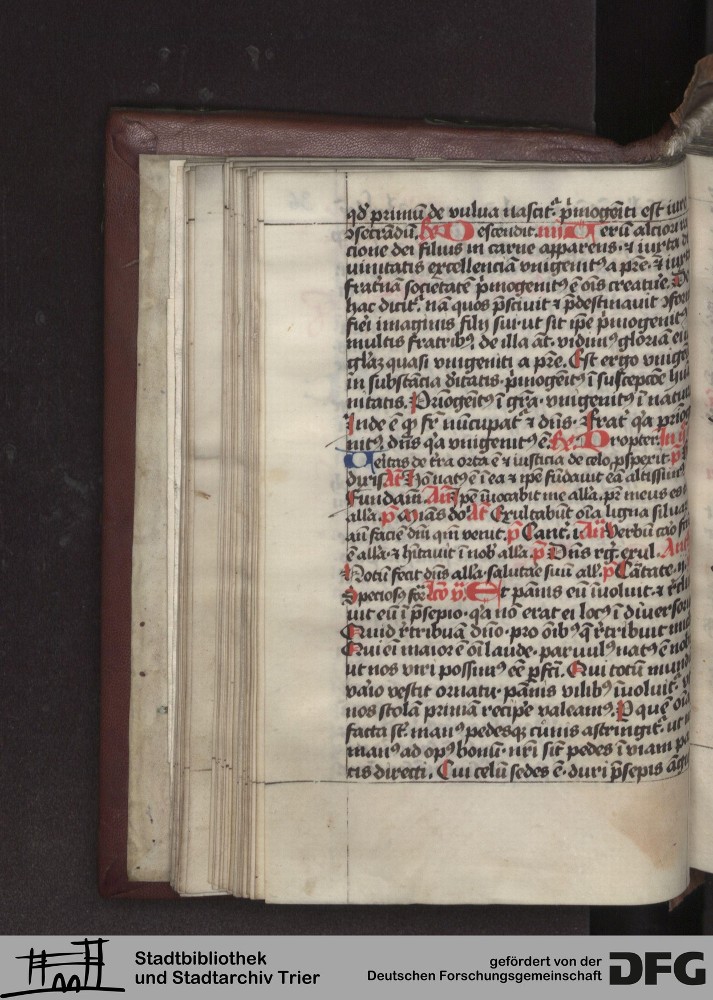 qd' primū de vulua nascit᷑. p̄mogēiti est iure
ɔsecrādū. Re D escendit. iiij D erū altiori ra
cione dei filius in carne apparens. ⁊ iuxta di
uinitatis excellenciā vnigenitꝰ a pr̄e. ⁊ iuxta
frat'nā societatē p̄mogenitꝰ ē oīs creature. De
hac dicit᷑. nā quos p̄sciuit ⁊ p̄destinauit ɔfor
fieri imaginis filij sui. ut sit ip̄e p̄mogenitꝰ
multis fratribꝫ. de illa āt. vidimꝰ gloriā eiꝰ
gl̄aꝫ quasi vnigeniti a pr̄e. Est ergo vnigeītꝰ
in substācia d'itatis. p̄mogēitꝰ ī susceptōe hu
nitatis. P̄mogeītꝰ ī gr̄a. vnigenitꝰ ī natura
Inde ē ꝙ fr̄ nūcupat᷑ ⁊ dn̄s. Frat᷑ q'a p̄mog
nitꝰ. dn̄s q'a vnigenitꝰ ē. Re. P ropter.
Ueītas de t'ra orta ē ⁊ iusticia de celo ꝓsperit. p̄
Añ Hō natꝰ ē ī ea ⁊ ip̄e fūdauit eā altissimꝰ
Fundam̄. Añ Ip̄e īuocabit me alla. pr̄ meus es tu
alla. p̄ Mīas do. Añ Exultabūt oīa ligna siluaꝝ
an̄ faciē dn̄i qm̄ venit. p̄ Cant̄. Añ Verbū caro fcm̄
ē alla. ⁊ hītauit ī nob' alla. p̄ Dn̄s rg̅. exul. Añ
Notū fecit dn̄s alla. salutāe suū all'. p̄ Cātate.
Speciosꝰ for̄. Lcō v. Et pānis eū īuoluit. ⁊ recli
uit eū ī p̄sepio. q'a nō erat ei locꝰ ī diuersorio
Quid r̄tribuā dn̄o. pro oībꝰ q̄ r̄tribuit mihi
Qui ei maior ē oī laude. paruulꝰ natꝰ ē nob'
ut nos viri possimꝰ eē ꝑfc̄i. Qui totū mundū
va'io vestit ornatu. pānis vilibꝰ īuoluit᷑. ut
nos stolā primā recip̄e valeamꝰ. P quē oīa
facta st̄. manꝰ pedesqꝫ cunis astringit᷑. ut n
manꝰ ad opꝰ bonū. nr̄i sīt pedes ī viam pa
cis directi. Cui celū sedes ē. duri p̄sepis āgu
Stadtbibliothek
und Stadtarchiv Trier
gefördert von der
Deutschen Forschungsgemeinschaft
DFG